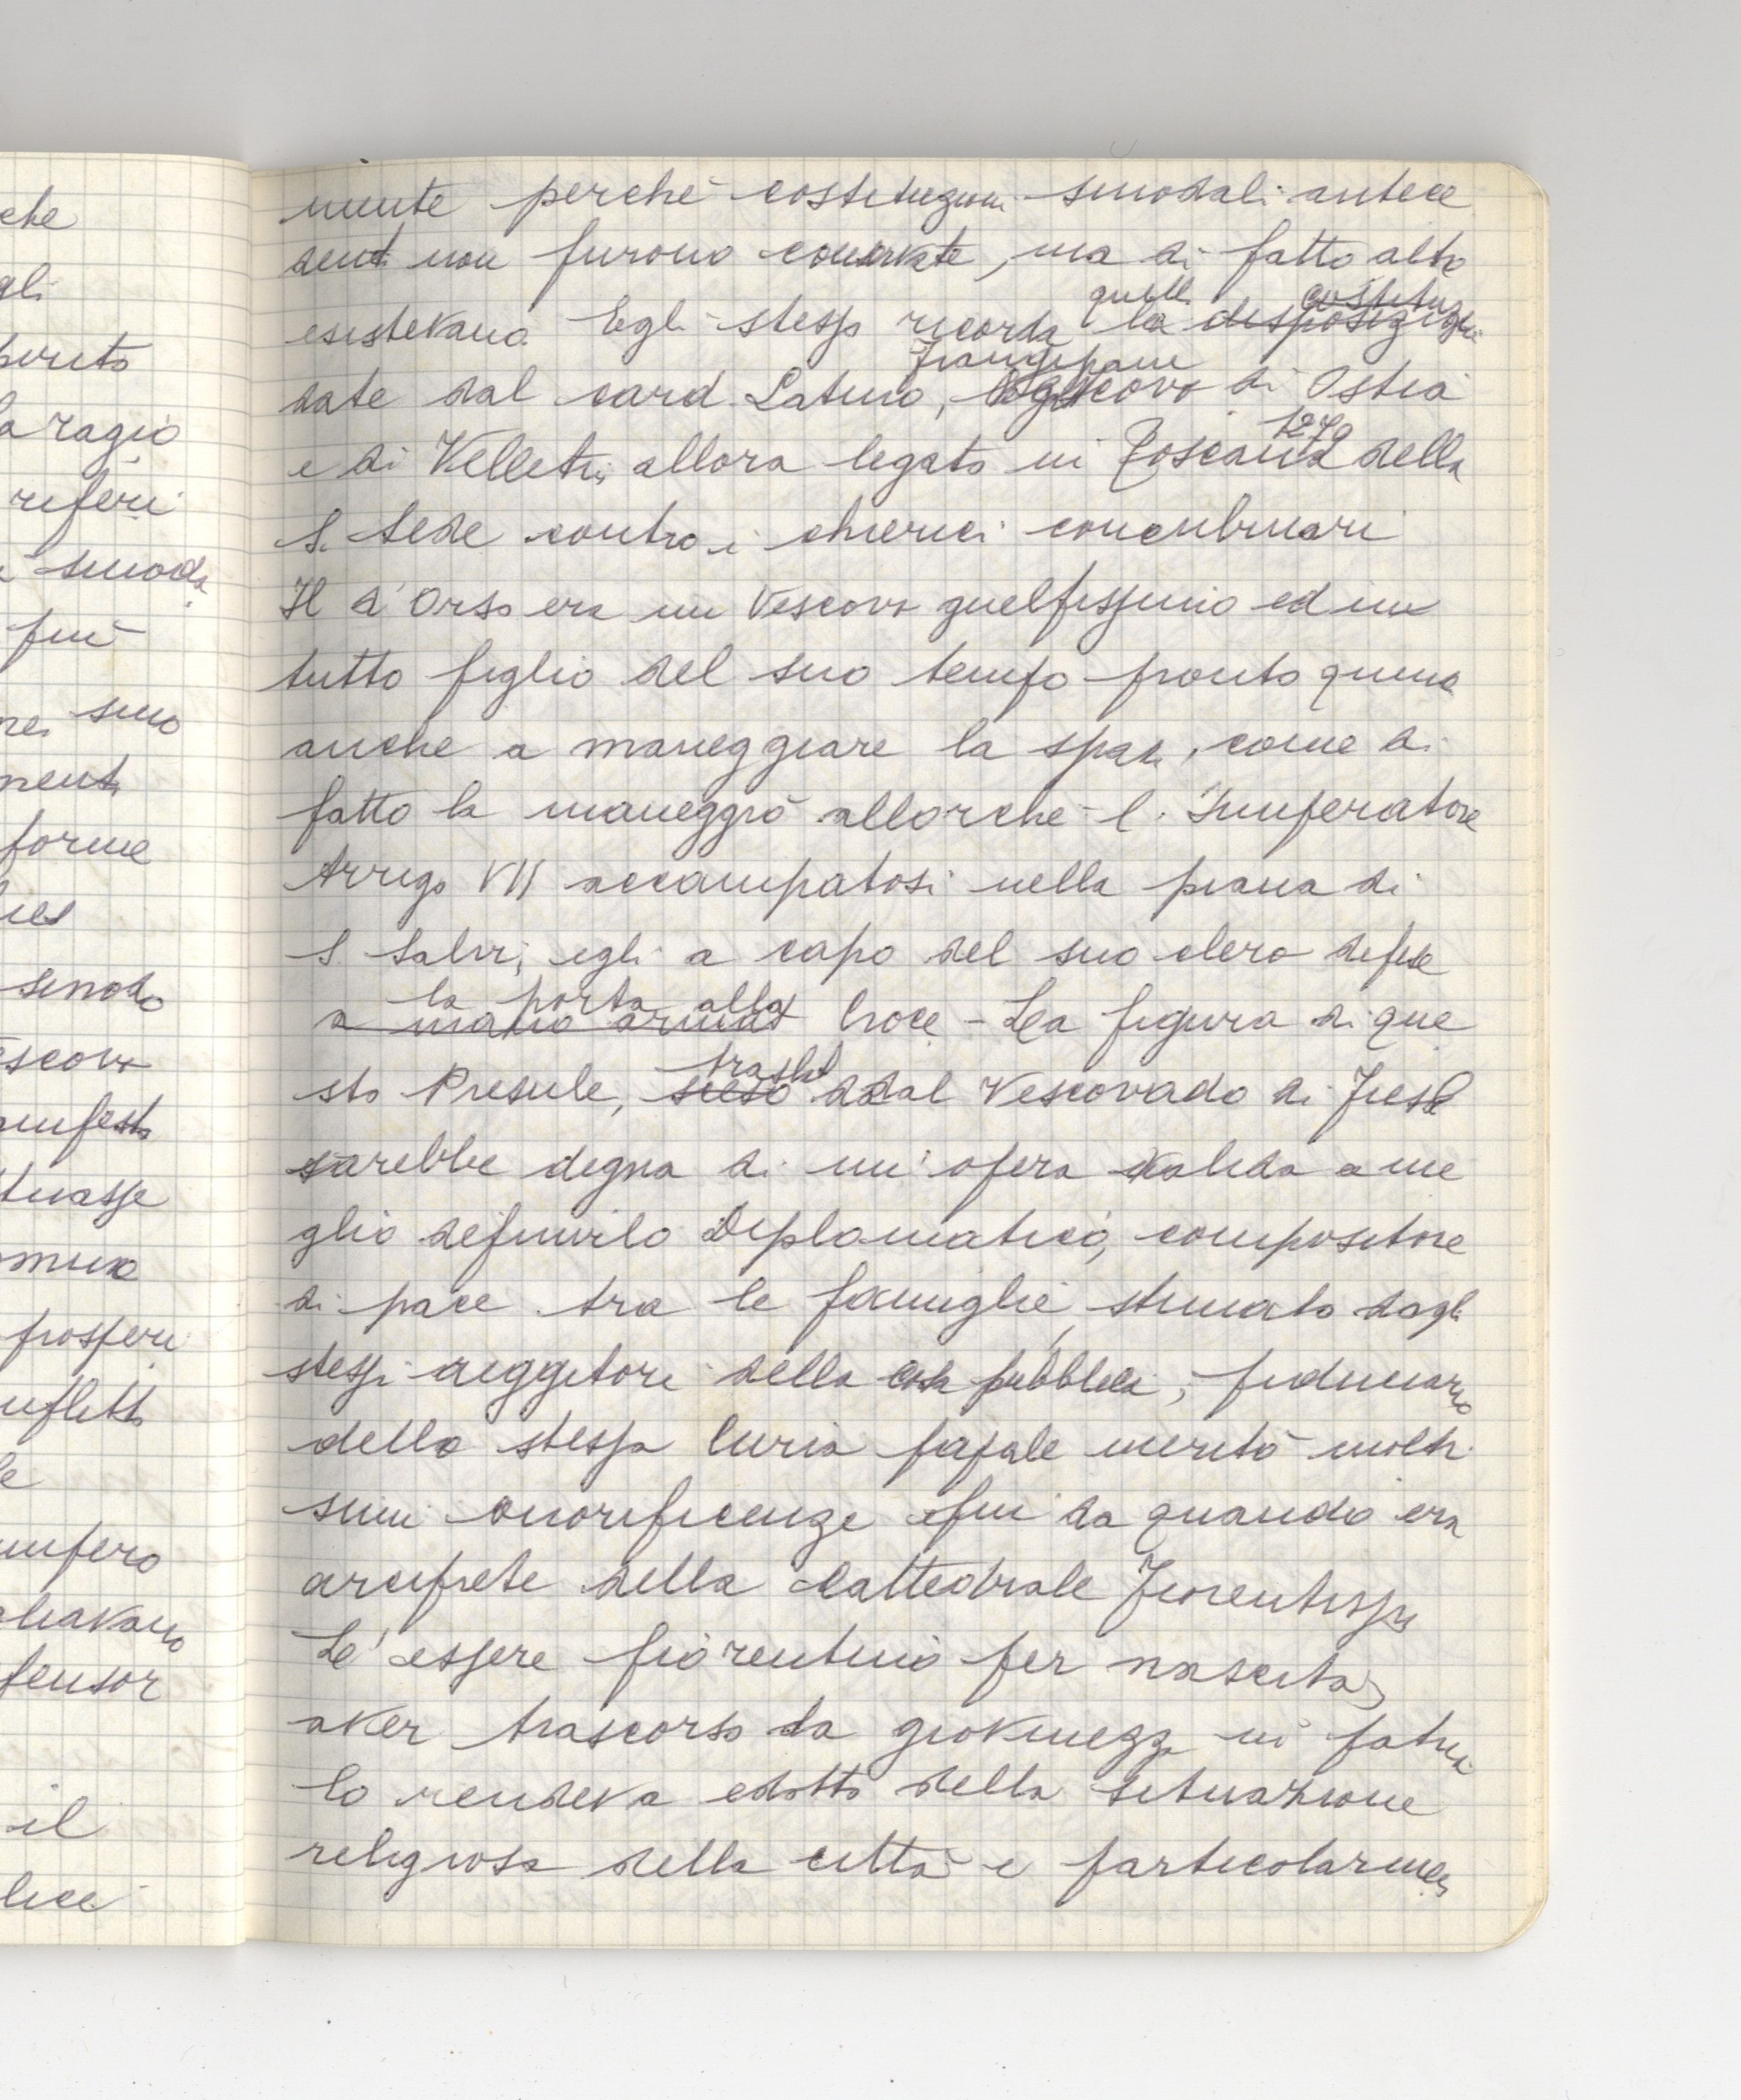 che
gli
perito
la ragio
riferi
sinoda
fui
nei sino
menti
forme
lies
sinodo
escovo
tuasse
prosperi
nflitti
le
mpero
liavano
fensor
il
lice
mente perchè costituzioni sinodali antece
denti non furono  , ma di fatto altre
esistevano. Egli stesso ricorda quelle la disposizioni costituz
date dal card. Latino, Frangipane Vescovo di Ostia
e di Velletri, allora legato in Toscana 1279 della
S. Sede contro i chierici concubinari
Il d'Orso era un Vescovo guelfissimo ed in
tutto figlio del suo tempo pronto quind
anche a maneggiare la spada, come di
fatto la maneggiò allorchè l'Imperatore
Arrigo VII accampatosi nella piana di
S. Salvi, egli a capo del suo clero difese
a mano armat la porta alla Croce - La figura di que
sto Presule, sceso traslat dal Vescovado di Fiesole
sarebbe degna di un'opera valida a me
glio definirlo Diplomatico, compositore
di pace tra le famiglie, stimato dagli
stessi reggitori della cosa pubblica, fiduciario
della stessa Curia papale meritò moltis
simi onorificenze fin da quando era
arciprete della Cattedrale Fiorentissa
Le essere fiorentino per nascita,
aver trascorso la giovinezza in patria
lo rendeva edotto della situazione
religiosa della città e particolarmen